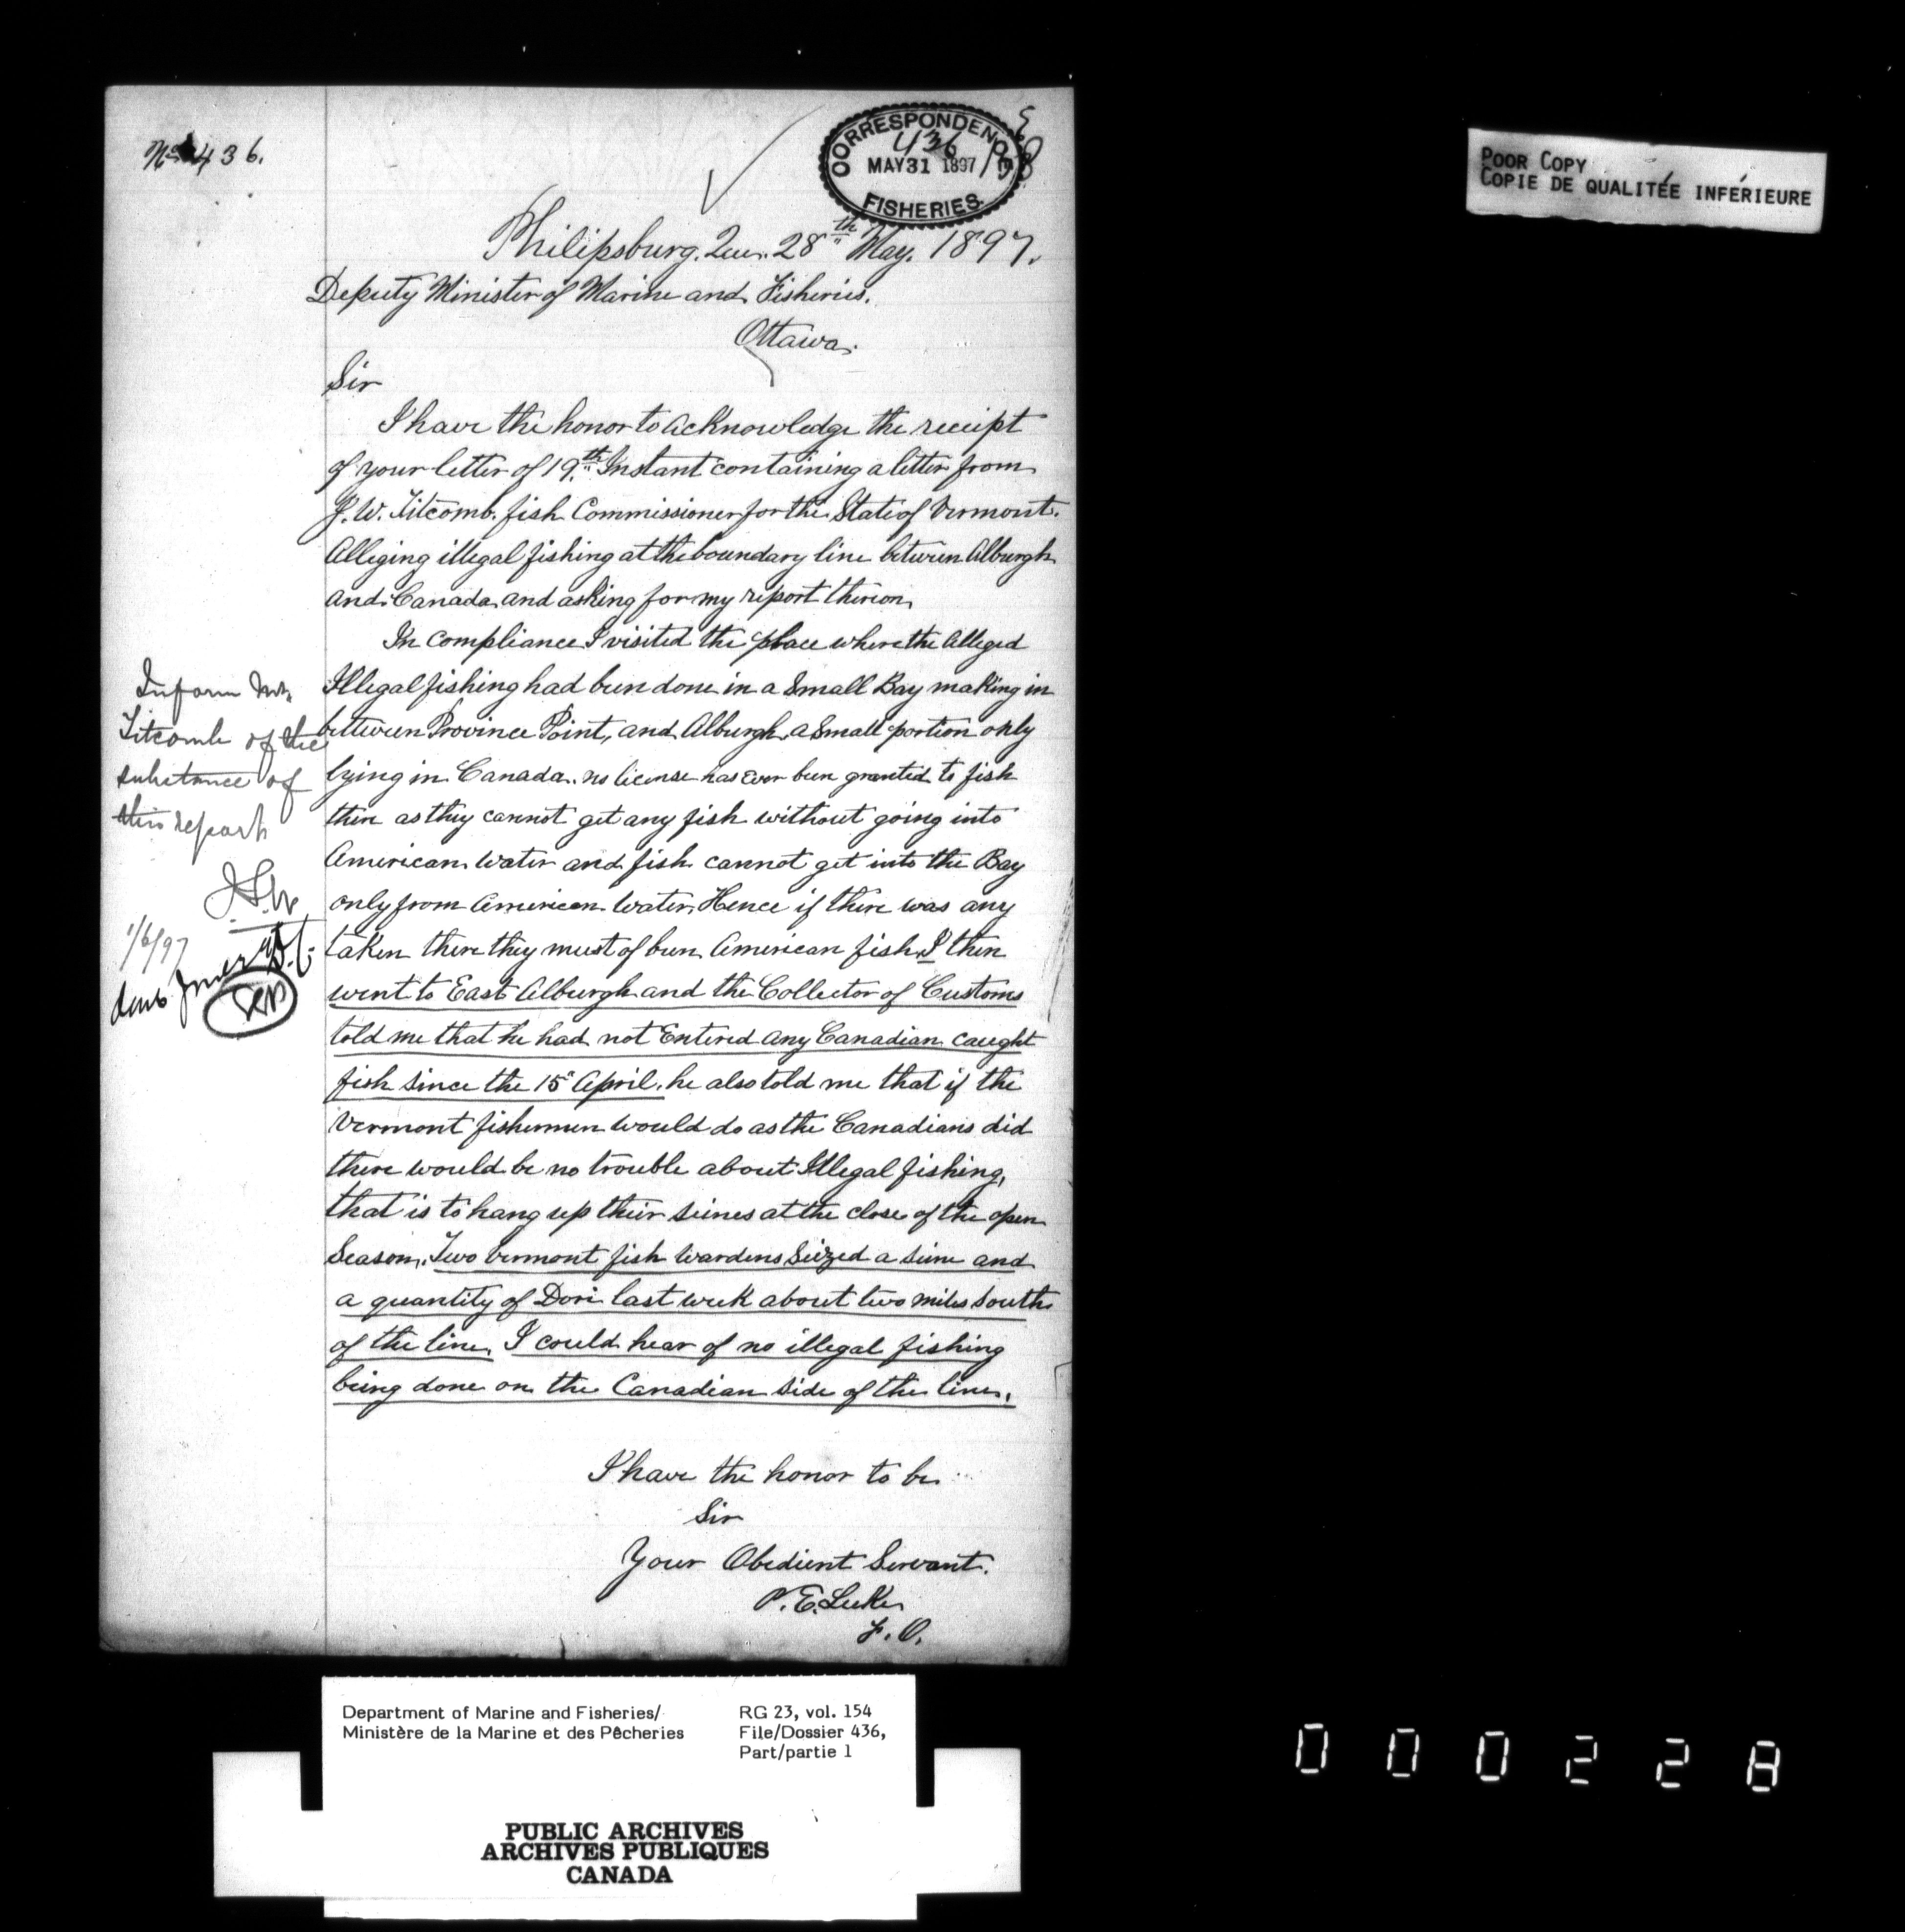 No 436.
CORRESPONDENCE
436
MAY 31 1897
FISHERIES.
POOR COPY
COPIE DE QUALITÉE INFÉRIEURE
Philipsburg. Que. 28th May. 1897.
Deputy Minister of Marine and Fisheries.
Ottawa.
Sir
I have the honor to acknowledge the receipt
of your letter of 19th Instant containing a letter from
J. W. Titcomb. fish Commissioner for the State of Vermont.
Alleging illegal fishing at the boundary line between Alburgh
and Canada and asking for my report thereon,
In compliance I visited the place where the alleged
Illegal fishing had been done in a Small Bay making in
between Province Point, and Alburgh, a small portion only
lying in Canada. no license has ever been granted to fish
there as they cannot get any fish without going into
American water and fish cannot get into the Bay
only from American water, Hence if there was any
taken there they must of been American fish, I then
went to East Alburgh and the Collector of Customs
told me that he had not Entered any Canadian caught
fish since the 15" April, he also told me that if the
Vermont fishermen would do as the Canadians did
there would be no trouble about Illegal fishing,
that is to hang up their seines at the close of the open
Season. Two vermont fish wardens Seized a seine and
a quantity of Dori last week about two miles south
of the line, I could hear of no illegal fishing
being done on the Canadian side of the line.
I have the honor to be
Sir
Your Obedient Servant.
P. E. Luke
F. O.
Inform Mr.
Titcomb of the
substance of
this report
1/6/97
Department of Marine and Fisheries/
Ministère de la Marine et des Pêcheries
RG 23, vol. 154
File/Dossier 436,
Part/partie 1
PUBLIC ARCHIVES
ARCHIVES PUBLIQUES
CANADA
000228